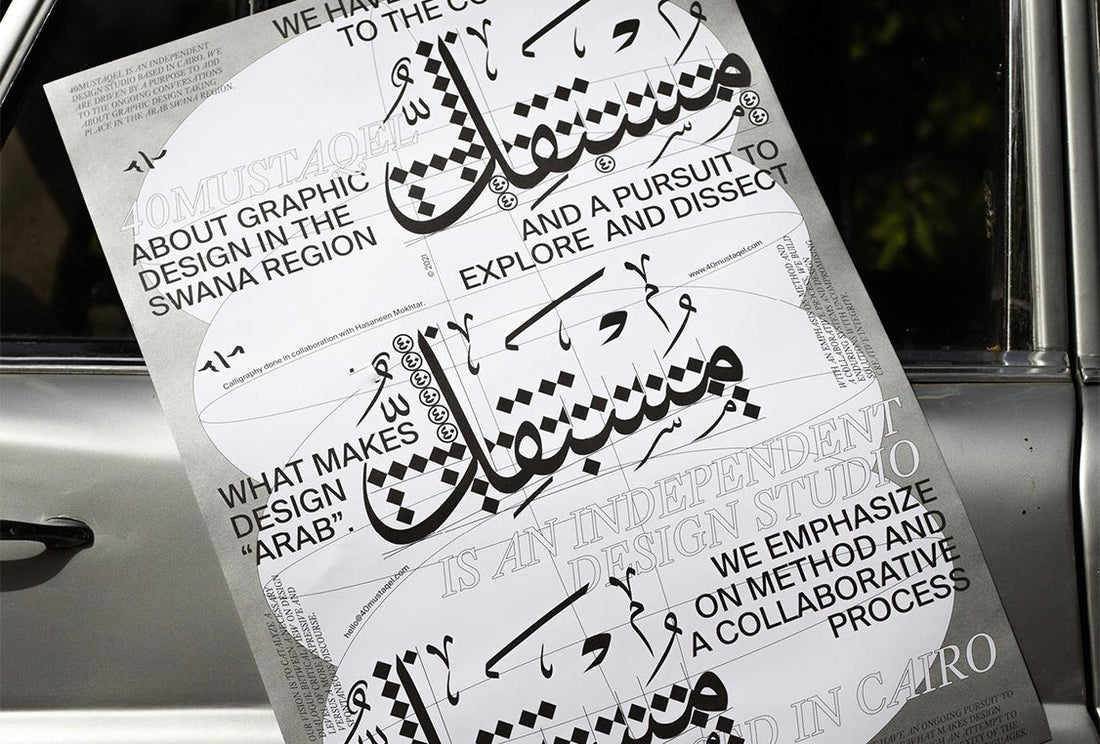 WE HAVE
TO THE CO
40MUSTAQEL IS AN INDEPENDENT
DESIGN STUDIO BASED IN CAIRO. WE
ARE DRIVEN BY A PURPOSE TO ADD
TO THE ONGOING CONVERSATIONS
ABOUT GRAPHIC DESIGN TAKING
PLACE IN THE ARAB SWANA REGION.
مُستقِلّ
40MUSTAQEL
ABOUT GRAPHIC
DESIGN IN THE
SWANA REGION
AND A PURSUIT TO
EXPLORE AND DISSECT
© 2021
www.40mustaqel.com
Calligraphy done in collaboration with Hasaneen Mokhtar.
WITH AN EMPHASIS ON METHOD AND
COLLABORATIVE PROCESSES, WE BUILD
مُستقِلّ
WHAT MAKES
DESIGN
“ARAB”.
IS AN INDEPENDENT
DESIGN STUDIO
WE EMPHASIZE
ON METHOD AND
A COLLABORATIVE
PROCESS
hello@40mustaqel.com
OUR VISION IS TO CATALYZE A
مُستقِلّ
D IN CAIRO
HAVE AN ONGOING PURSUIT TO
WHAT MAKES DESIGN
AN ATTEMPT TO